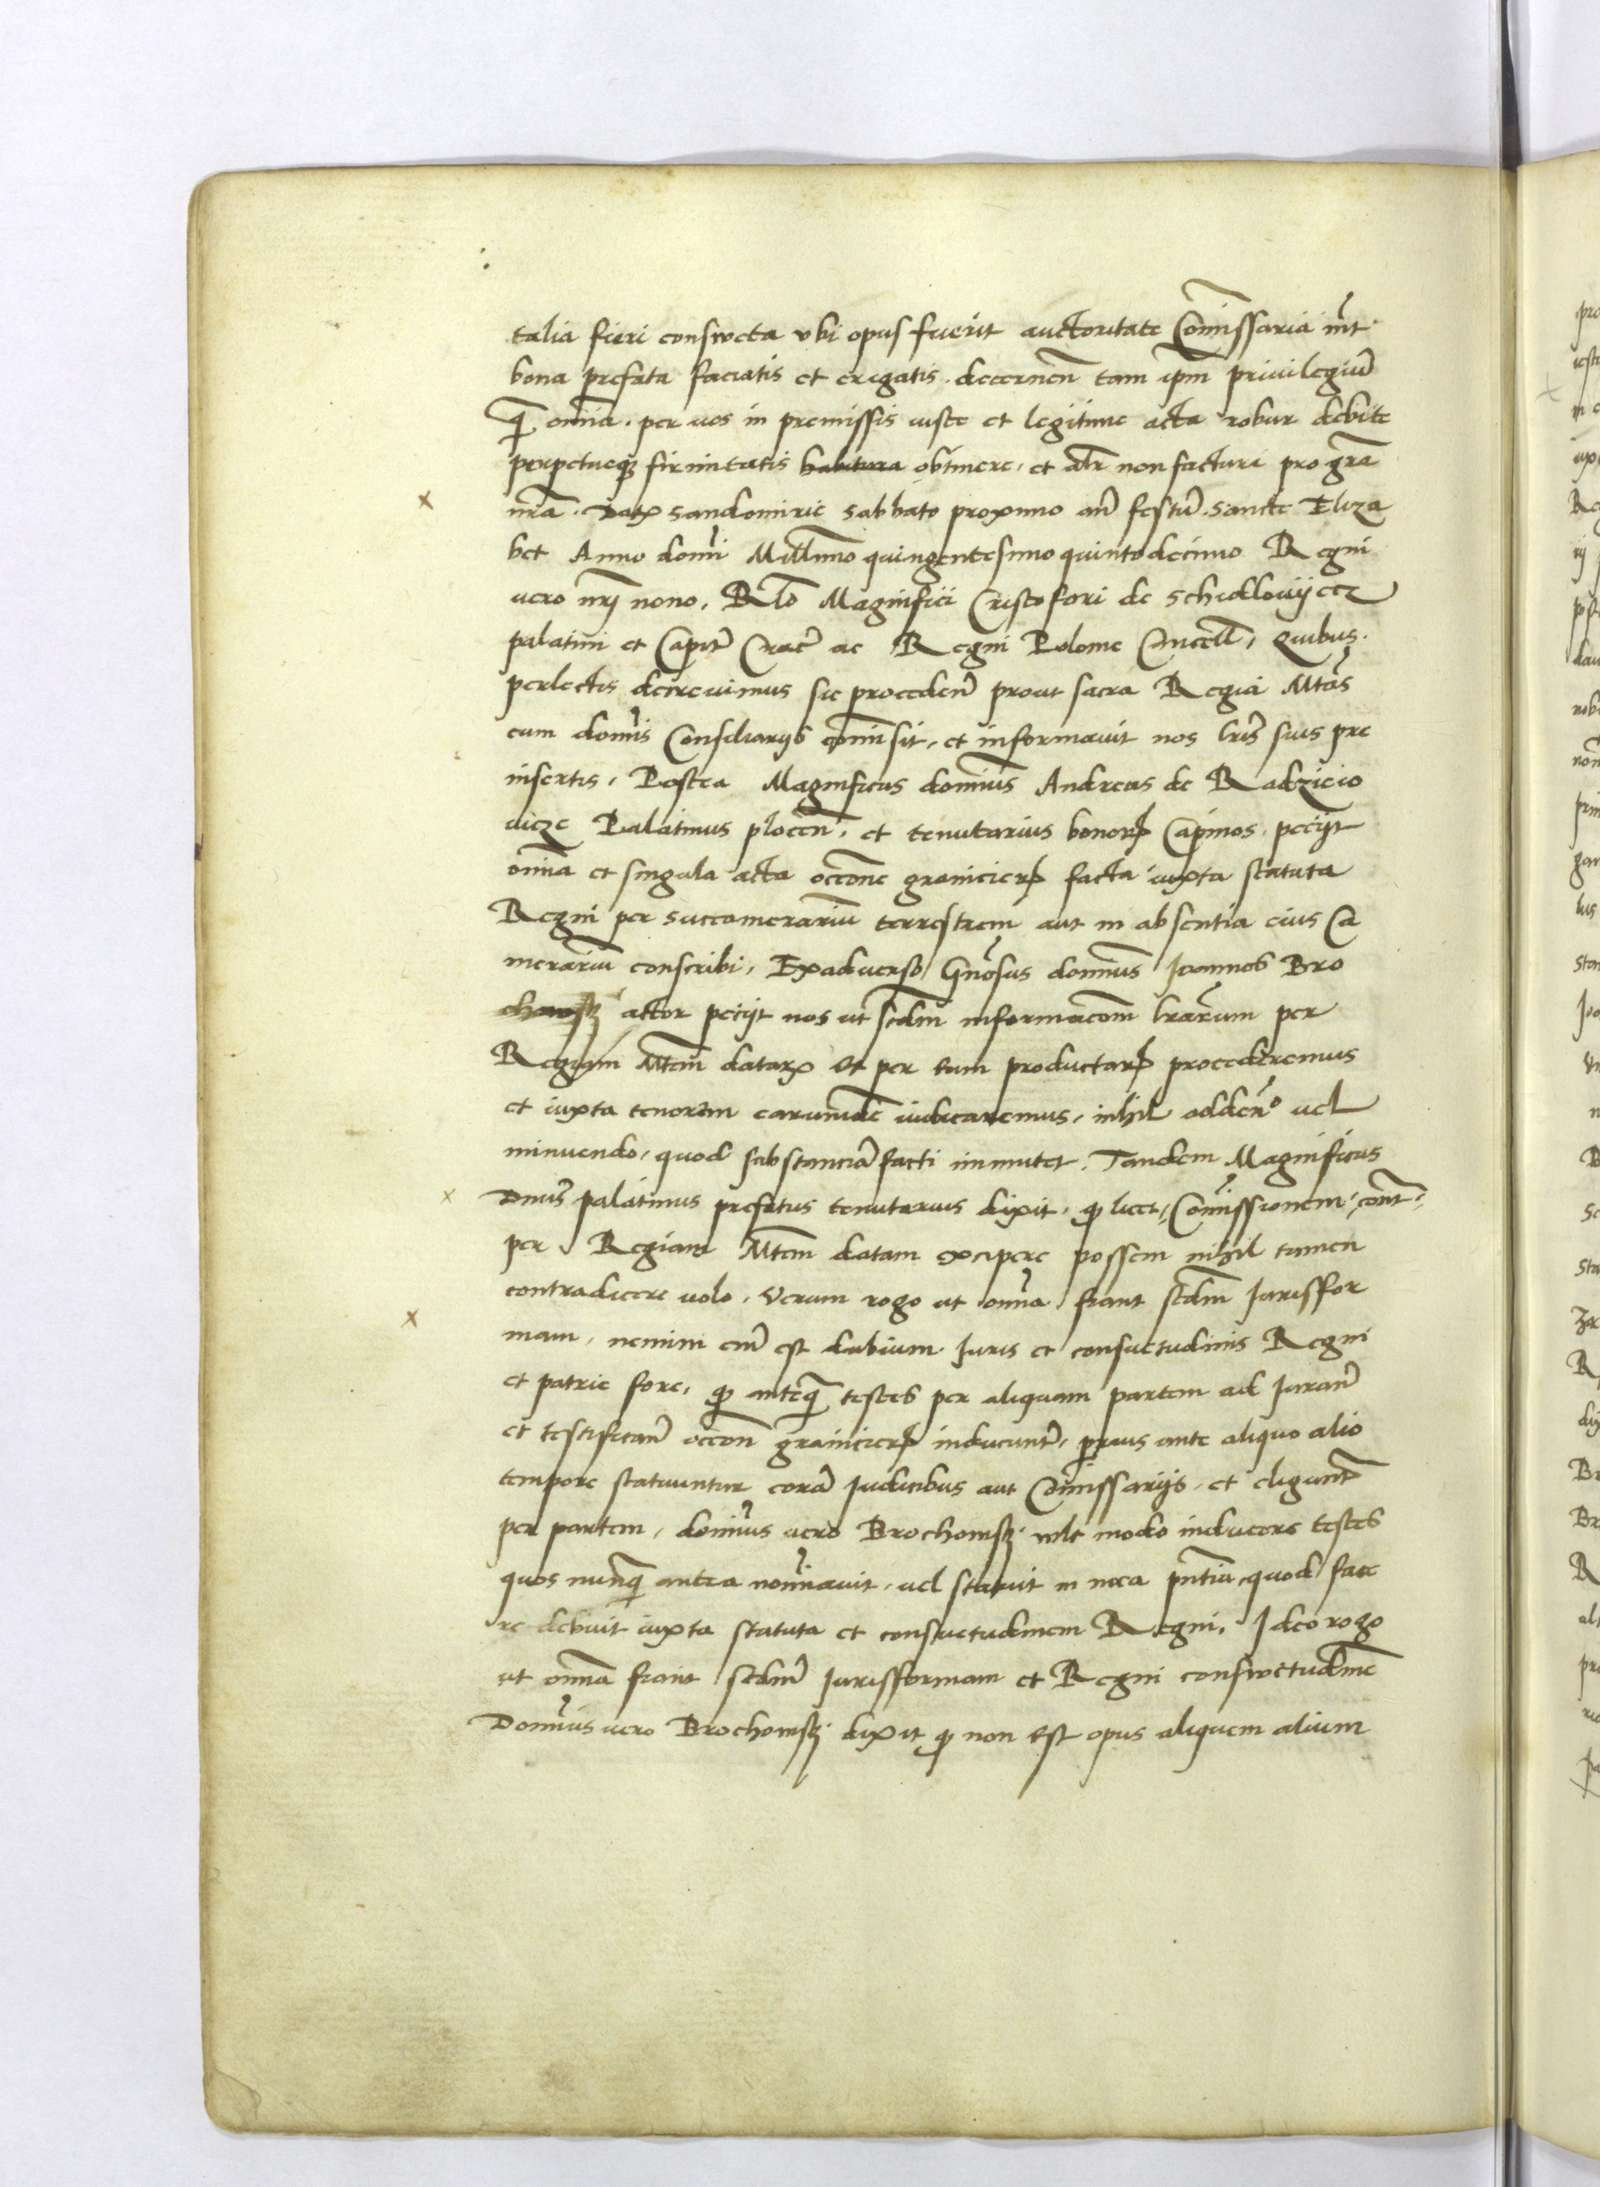 talia fieri consweta vbi opus fuerit auctoritate Com̄issaria int̄
bona prefata faciatis et erigatis. decernen̄ tam ipm̄ priuilegiū
q̄ om̄ia. per uos in premissis iuste et legitime acta robur debite
perpetueqȝ firmitatis habitura obtinere, et alr̄ non facturi pro gr̄a
nr̄a. Datꝝ Sandomirie sabbato proximo an̄ festū Sancte Eliza
bet Anno domi̅ Mill̄imo quingentesimo quinto decimo Regni
vero nr̄j nono, Rl̄o Magnifici Cristofori de Schidlovijecz
palatini et Capit̄ Crac̄ ac Regni Polonie Cancell̄, Quibus.
perlectis decreuimus sic proceden̄ prout sacra Regia Mtās
cum domīs Consiliarijs com̄isit, et informauit nos lr̄is suis pre
insertis, Postea Magnificus domin̄us Andreas de Radzieio
vicze Palatinus plocen̄. et tenutarius bonorꝝ Capinos. petijt
om̄ia et singula acta occ̄one granicierꝝ facta iuxta statuta
Regni per succamerariū terrestrem aut in absentia eius Ca
merariū conscribi, Exaduerso Gn̄osus domin̄us Ioannes Bro
chowsȝ actor petijt nos ut scd̄m informac̄om lr̄arum per
Regiam Mtem̄ datarꝝ et per eum productarꝝ procederemus
et iuxta tenorem earundē iudicaremus, nihil adden̄o vel
minuendo, quod substanciā facti immutet. Tandem Magnificus
Dnūs palatinus prefatus tenutarius dixit, ꝙ licet, Com̄issionem, cont̄
per Regiam Mtem̄ datam excipere possem nihil tamen
contradicere volo, Verum rogo ut om̄ia fiant scd̄m Iurisfor
mam, nemini em̄ est dubium Iuris et consuetudinis Regni
et patrie fore, ꝙ anteq̄ testes per aliquam partem ad Iuran̄
et testifican̄ occ̄on granicierꝝ inducunt̄, prius ante aliquo alio
tempore statuuntur corā Iudicibus aut Com̄issarijs, et eligunt̄
per partem, domin̄us vero Brochowsȝ. vult modo inducere testes
quos nunq̄ antea nomīauit, vel statuit in mea pn̄tia, quod face
re debuit iuxta statuta et consuetudinem Regni. Ideo rogo
ut om̄ia fiant scdm̄ Iurisformam et Regni conswetudinē
Domin̄us vero Brochowsȝ. dixit ꝙ non est opus aliquem alium